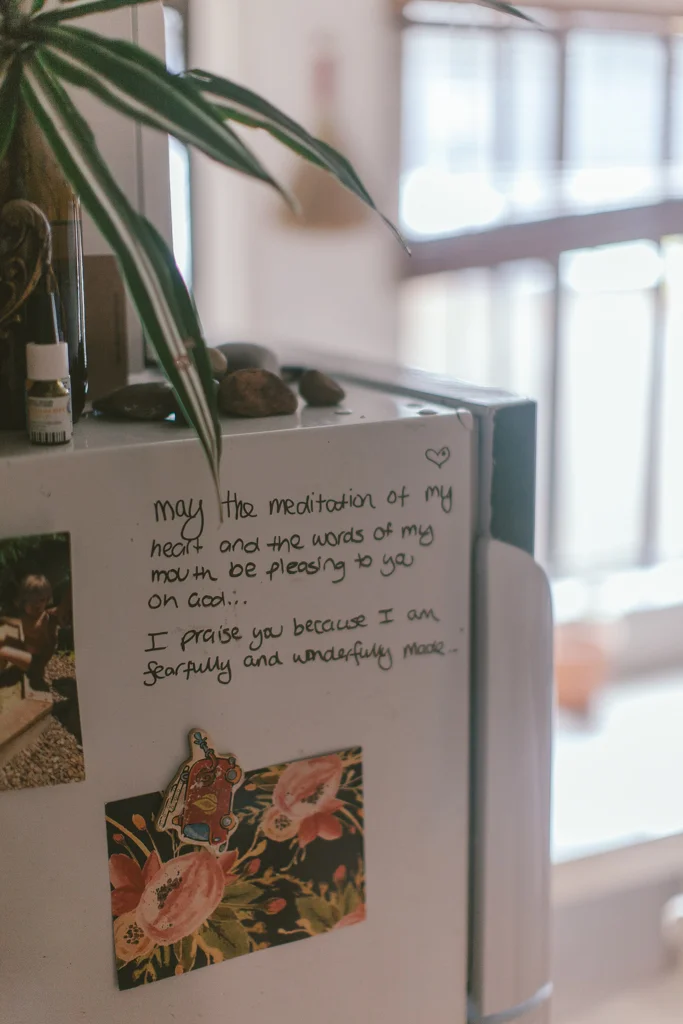 may the meditation of my
heart and the words of my
mouth be pleasing to you
oh God...
I praise you because I am
fearfully and wonderfully made..